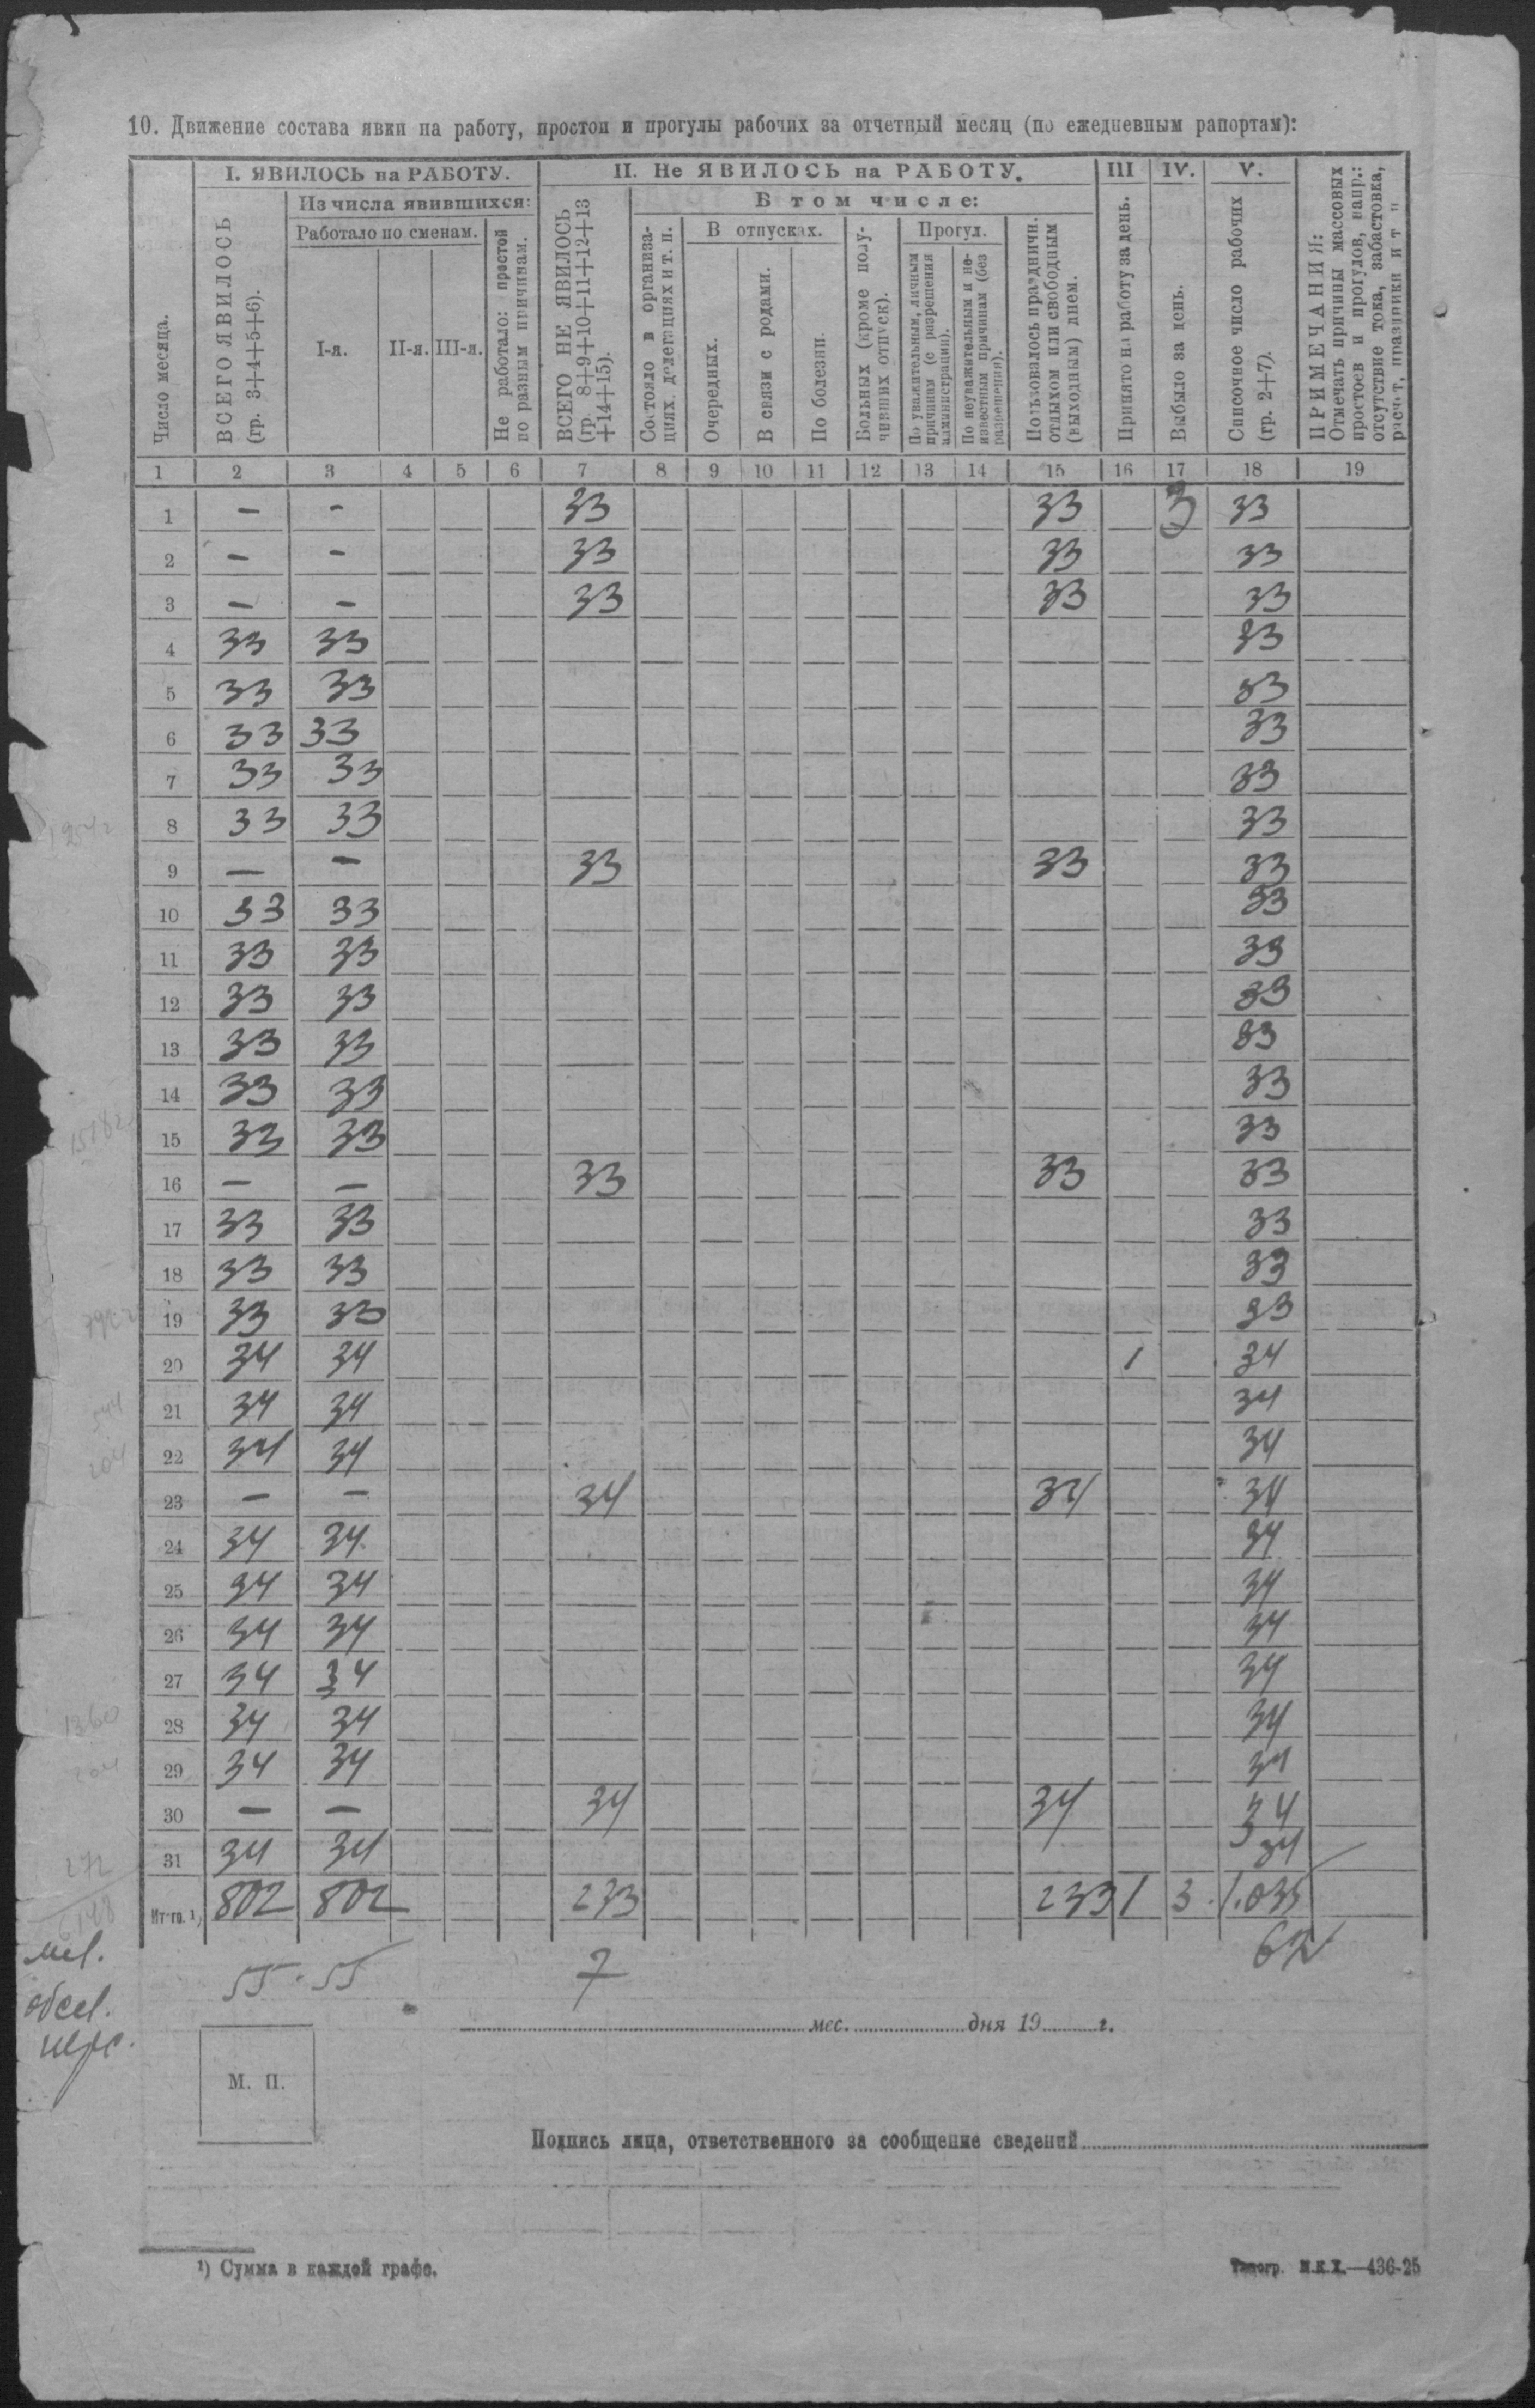 10. Движение состава явки на работу, простои и прогулы рабочих за отчетный месяц (по ежедневным рапортам):
I. ЯВИЛОСЬ на РАБОТУ.
II. Не ЯВИЛОСЬ на РАБОТУ.
III
IV.
V.
Число месяца.
ВСЕГО ЯВИЛОСЬ (гр. 3+4+5+6).
Из числа явившихся:
Работало по сменам.
I-я.
II-я.
III-я.
Не работало: простой по разным причинам.
ВСЕГО НЕ ЯВИЛОСЬ (гр. 8+9+10+11+12+13+14+15).
В том числе:
Состояло в организациях, делегациях и т. п.
В отпусках.
Очередных.
В связи с родами.
По болезни.
Больных (кроме получивших отпуск).
Прогул.
По уважительным, личным причинам (с разрешения администрации).
По неуважительным и неизвестным причинам (без разрешения).
Пользовалось праздничн. отдыхом или свободным (выходным) днем.
Принято на работу за день.
Выбыло за день.
Списочное число рабочих (гр. 2+7).
ПРИМЕЧАНИЯ:
Отмечать причины массовых простоев и прогулов, напр.: отсутствие тока, забастовка, расчет, праздники и т п
1 2 3 4 5 6 7 8 9 10 11 12 13 14 15 16 17 18 19
1 — — 33 33 3 33
2 — — 33 33 33
3 — — 33 33 33
4 33 33 33
5 33 33 33
6 33 33 33
7 33 33 33
8 33 33 33
9 — — 33 33 33
10 33 33 33
11 33 33 33
12 33 33 33
13 33 33 33
14 33 33 33
15 33 33 33
16 — — 33 33 33
17 33 33 33
18 33 33 33
19 33 33 33
20 34 34 1 34
21 34 34 34
22 34 34 34
23 — — 34 34 34
24 34 34 34
25 34 34 34
26 34 34 34
27 34 34 34
28 34 34 34
29 34 34 34
30 — — 34 34 34
31 34 34 34
Итого. ¹) 802 802 233 233 1 3 1.035
55 · 55 7
мес. дня 19 г.
М. П.
Подпись лица, ответственного за сообщение сведений
¹) Сумма в каждой графе.
Типогр. М.К.Х.—436-25
544
204
1360
204
272